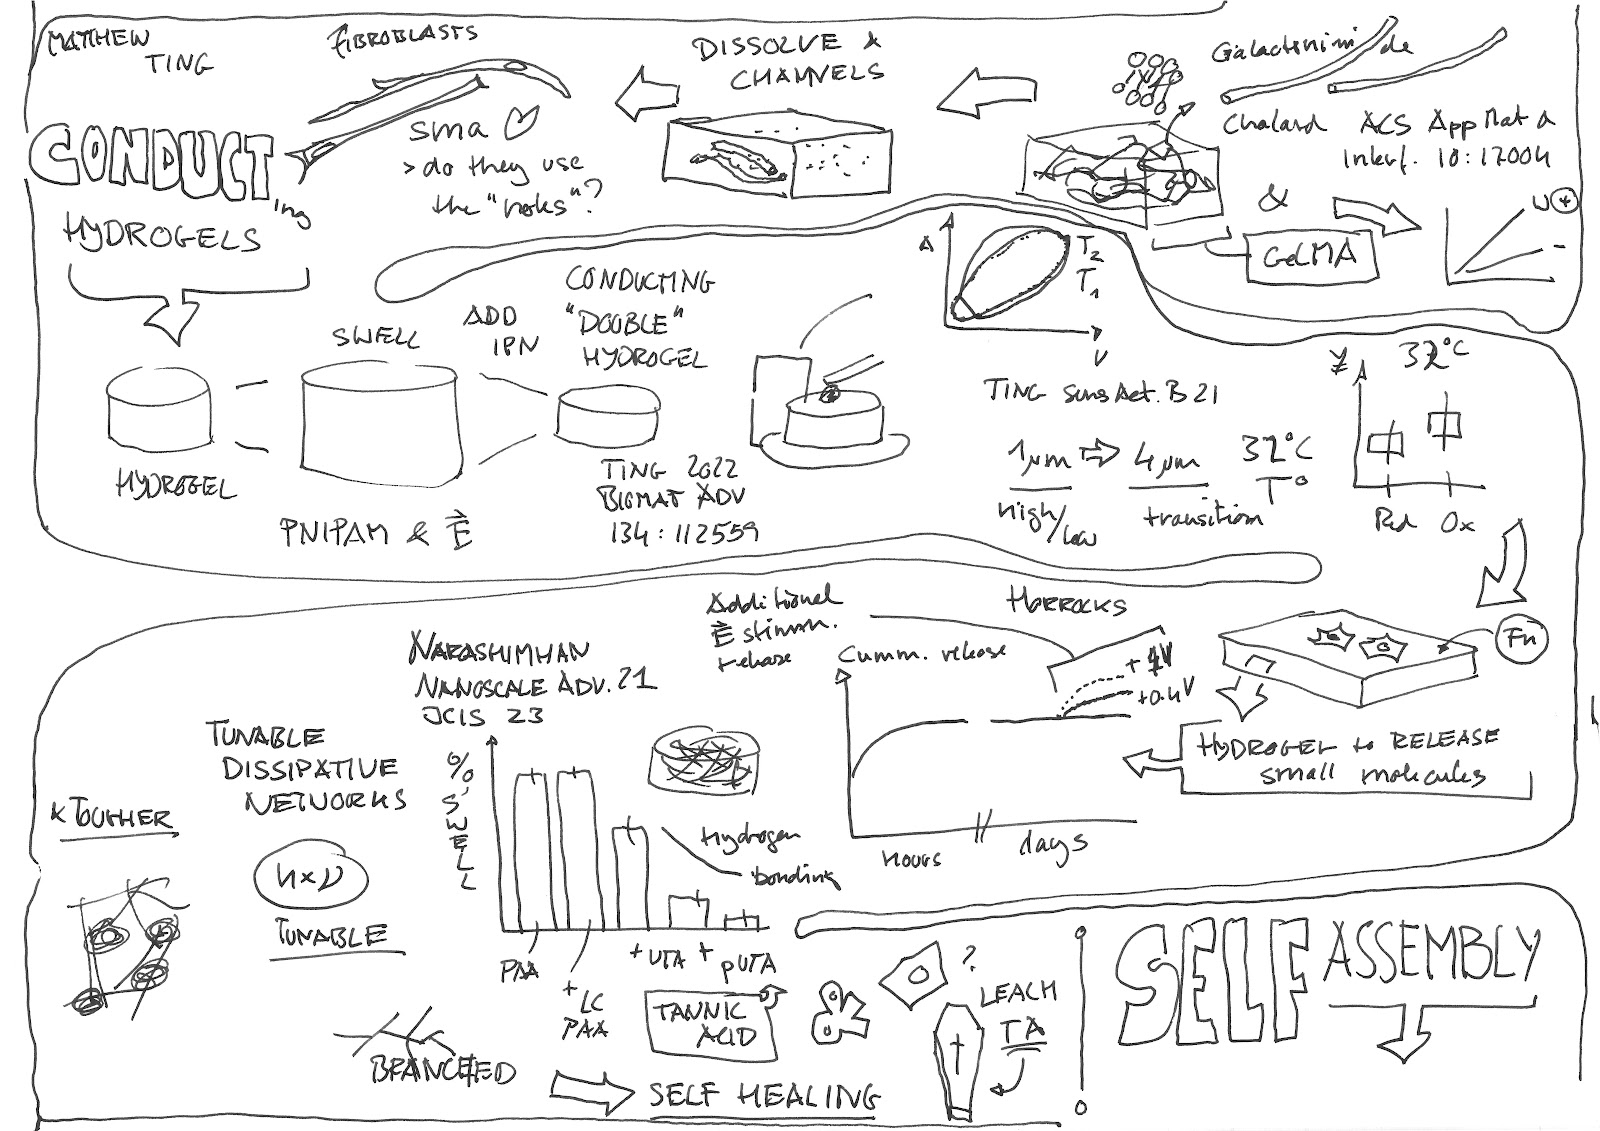 MATTHEW
TING
CONDUCT
'ing
HYDROGELS
FIBROBLASTS
sma
> do they use
the "holes"?
DISSOLVE &
CHANNELS
Galactenimide
Chalard ACS App Mat &
Interf. 10:17004
&
GelMA
+
-
SWELL
ADD
IPN
CONDUCTING
"DOUBLE"
HYDROGEL
HYDROGEL
PNIPAM & E
TING 2022
BIOMAT ADV
134:112559
A
V
T2
T1
TING Sens Act. B 21
1μm ⇒ 4μm
high/low
transition
32°C
T°
32°C
Red Ox
Fn
HYDROGEL to RELEASE
small molecules
HORROCKS
Additional
E stimm.
release
Cumm. release
+ 1V
+0.4V
hours
days
NARASHIMHAN
NANOSCALE ADV. 21
JCIS 23
TUNABLE
DISSIPATIVE
NETWORKS
& TOUGHER
TUNABLE
% SWELL
Hydrogen
bonding
PAA
+ LC
PAA
+ UTA
+ pUTA
TANNIC
ACID
BRANCHED
SELF HEALING
?
LEACH
TA
SELF ASSEMBLY